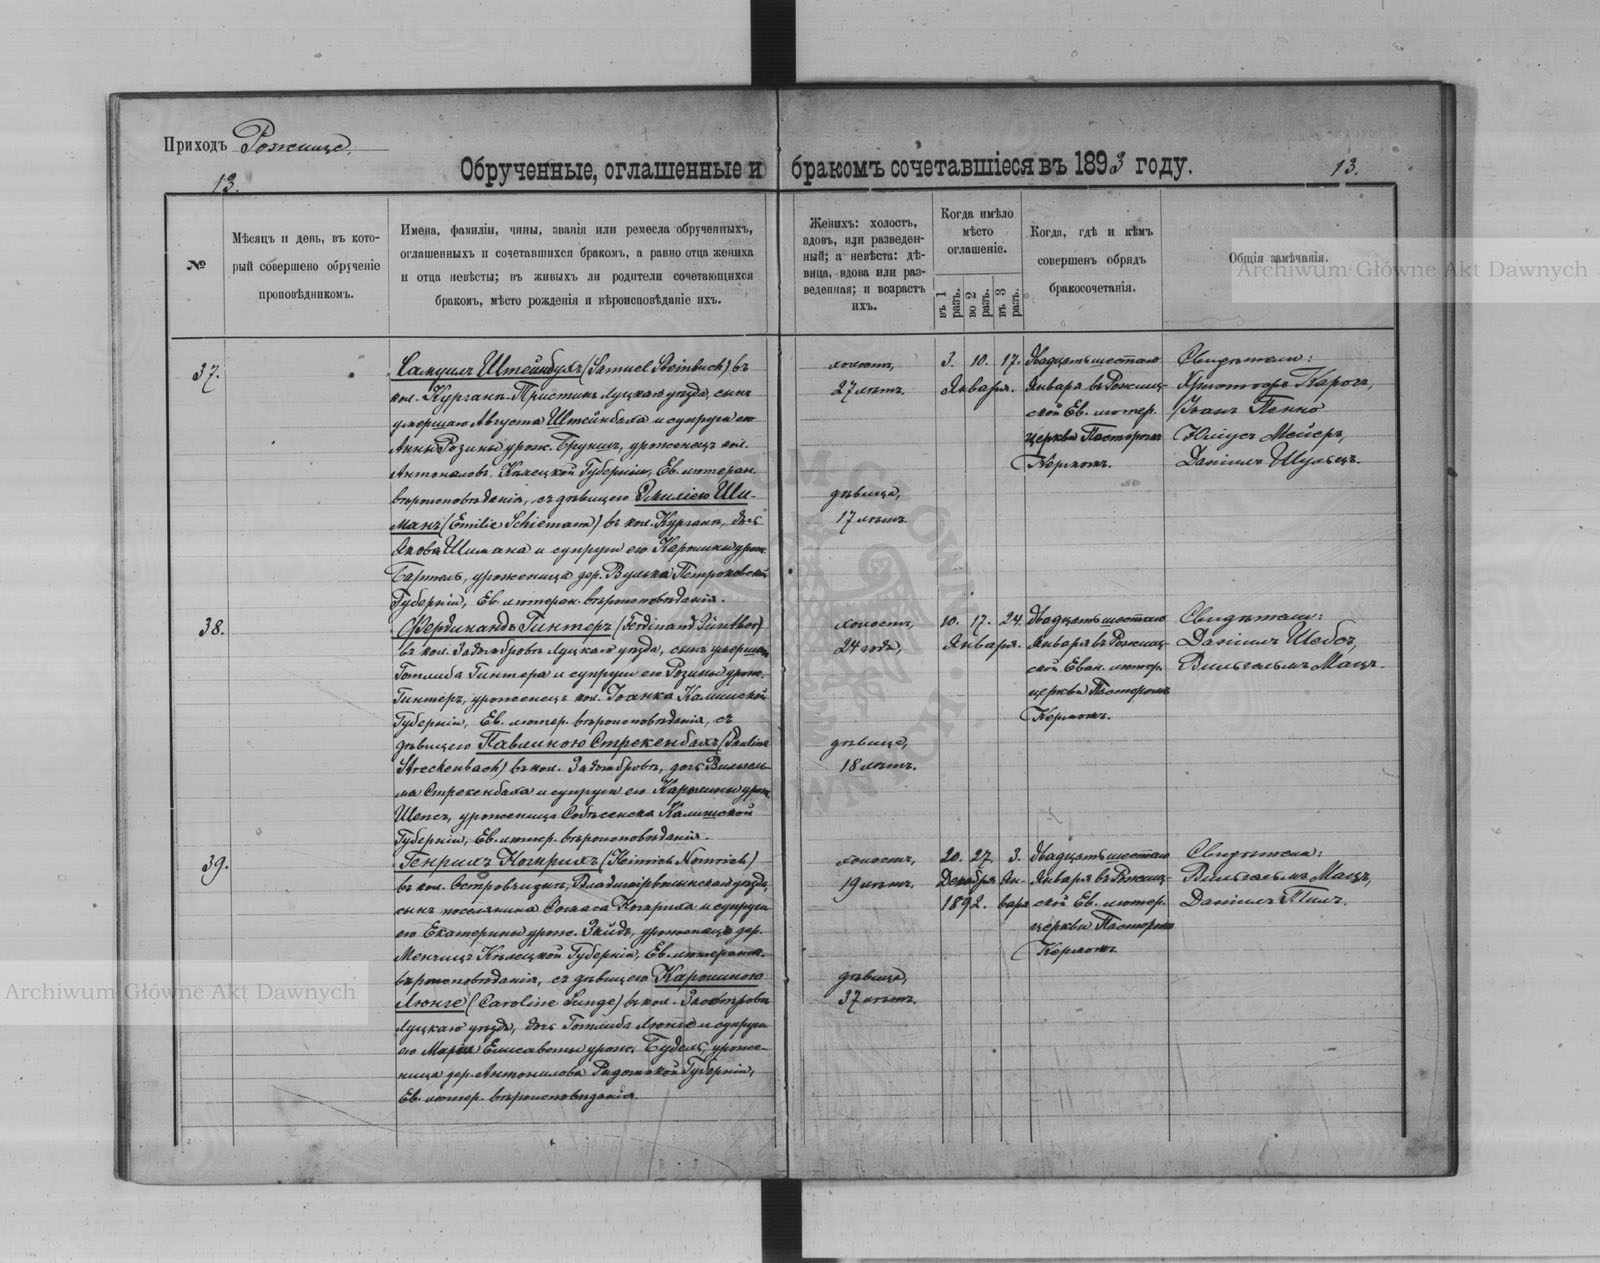 Приходъ Рожище.
Обрученные, оглашенные и бракомъ сочетавшіеся въ 1893 году.
13.
13.
№
Мѣсяцъ и день, въ кото-
рый совершено обрученіе
проповѣдникомъ.
Имена, фамиліи, чины, званія или ремесла обрученныхъ,
оглашенныхъ и сочетавшихся бракомъ, а равно отца жениха
и отца невѣсты; въ живыхъ ли родители сочетающихся
бракомъ, мѣсто рожденія и вѣроисповѣданіе ихъ.
Женихъ: холостъ,
вдовъ, или разведен-
ный; а невѣста: дѣ-
вица, вдова или раз-
веденная; и возрастъ
ихъ.
Когда имѣло
мѣсто
оглашеніе.
въ 1 разъ.
во 2 разъ.
въ 3 разъ.
Когда, гдѣ и кѣмъ
совершенъ обрядъ
бракосочетанія.
Общія замѣчанія.
Archiwum Główne Akt Dawnych
37.
Самуилъ Штейнбухъ (Samuel Steinbuch) въ
кол. Курганъ-Пристань Луцкаго уѣзда, сынъ
умершаго Августа Штейнбаха и супруги его
Анны Розины урож. Брукшъ, уроженецъ кол.
Кѣлецкой Губерніи, Ев. лютеран.
вѣроисповѣданія, съ дѣвицею Эмиліею Ши-
манъ (Emilie Schiemann) въ кол. Курганъ, дочь
Якова Шимана и супруги его Каролины урож.
Бартель, уроженица дер. Вулька Петроковской
Губерніи, Ев. лютеран. вѣроисповѣданія.
холостъ,
27 лѣтъ.
дѣвица,
17 лѣтъ.
3. 10. 17.
Января.
Двадцать шестого
Января въ Рожищ-
ской Ев. лютер.
церкви Пасторомъ
Керномъ.
Свидѣтели:
Христофъ Карогъ,
Іванъ Пенно
Юліусъ Мейеръ,
Даніилъ Шульцъ.
38.
Фердинандъ Гинтеръ (Ferdinand Günther)
въ кол. Луцкаго уѣзда, сынъ умершаго
Готлиба Гинтера и супруги его Розины урож.
Гинтеръ, уроженецъ кол. Іоанка Калишской
Губерніи, Ев. лютер. вѣроисповѣданія, съ
дѣвицею Павлиною Стрекенбахъ (Pauline
Streckenbach) въ кол. дочь Вильгель-
ма Стрекенбаха и супруги его Каролины урож.
Шепсъ, уроженица Калишской
Губерніи, Ев. лютер. вѣроисповѣданія.
холостъ,
24 года,
дѣвица,
18 лѣтъ.
10. 17. 24.
Января.
Двадцать шестого
Января въ Рожищ-
ской Еван. лютер.
церкви Пасторомъ
Керномъ.
Свидѣтели:
Даніилъ Шебсъ,
Вильгельмъ Мацъ.
39.
Генрихъ (Heinrich)
въ кол. Владимірволынскаго уѣзда,
сынъ поселянина и супруги
его Екатерины урож. Зейдъ, уроженецъ дер.
Кѣлецкой Губерніи, Ев. лютеранск.
вѣроисповѣданія, съ дѣвицею Каролиною
Люнге (Caroline Lunge) въ кол.
Луцкаго уѣзда, дочь Готлиба Люнге и супруги
его Маріи Елисаветы урож. Будель, уроже-
ница дер. Антонилова Радомской Губерніи,
Ев. лютер. вѣроисповѣданія.
холостъ,
19 лѣтъ.
дѣвица,
37 лѣтъ.
20. 27. 3.
Декабря Ян-
1892. варя
Двадцать шестого
Января въ Рожищ-
ской Ев. лютер.
церкви Пасторомъ
Керномъ.
Свидѣтели:
Вильгельмъ Мацъ,
Даніилъ Тимъ.
Archiwum Główne Akt Dawnych